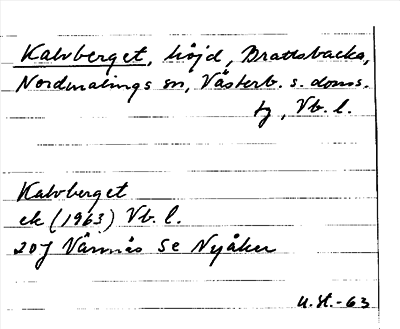 Kalvberget, höjd, Brattsbacka,
Nordmalings sn, Västerb. s. doms.
tg, Vb. l.
Kalvberget
ek (1963) Vb. l.
20J Vännäs SE Nyåker
U. St. -63